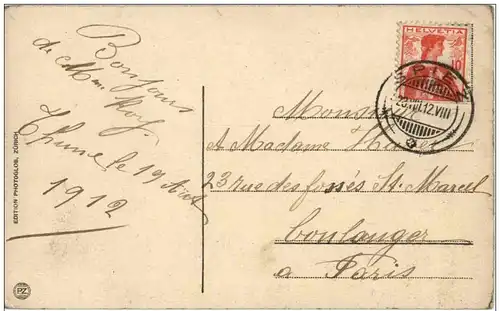 Bonjour
de Mme Roy.
Thune le 19 Août
1912
EDITION PHOTOGLOB, ZÜRICH
PZ
HELVETIA
10
SPIEZ
VIII.12.VIII
Monsieur
et Madame
23 rue des fossés St. Marcel
boulanger
a Paris